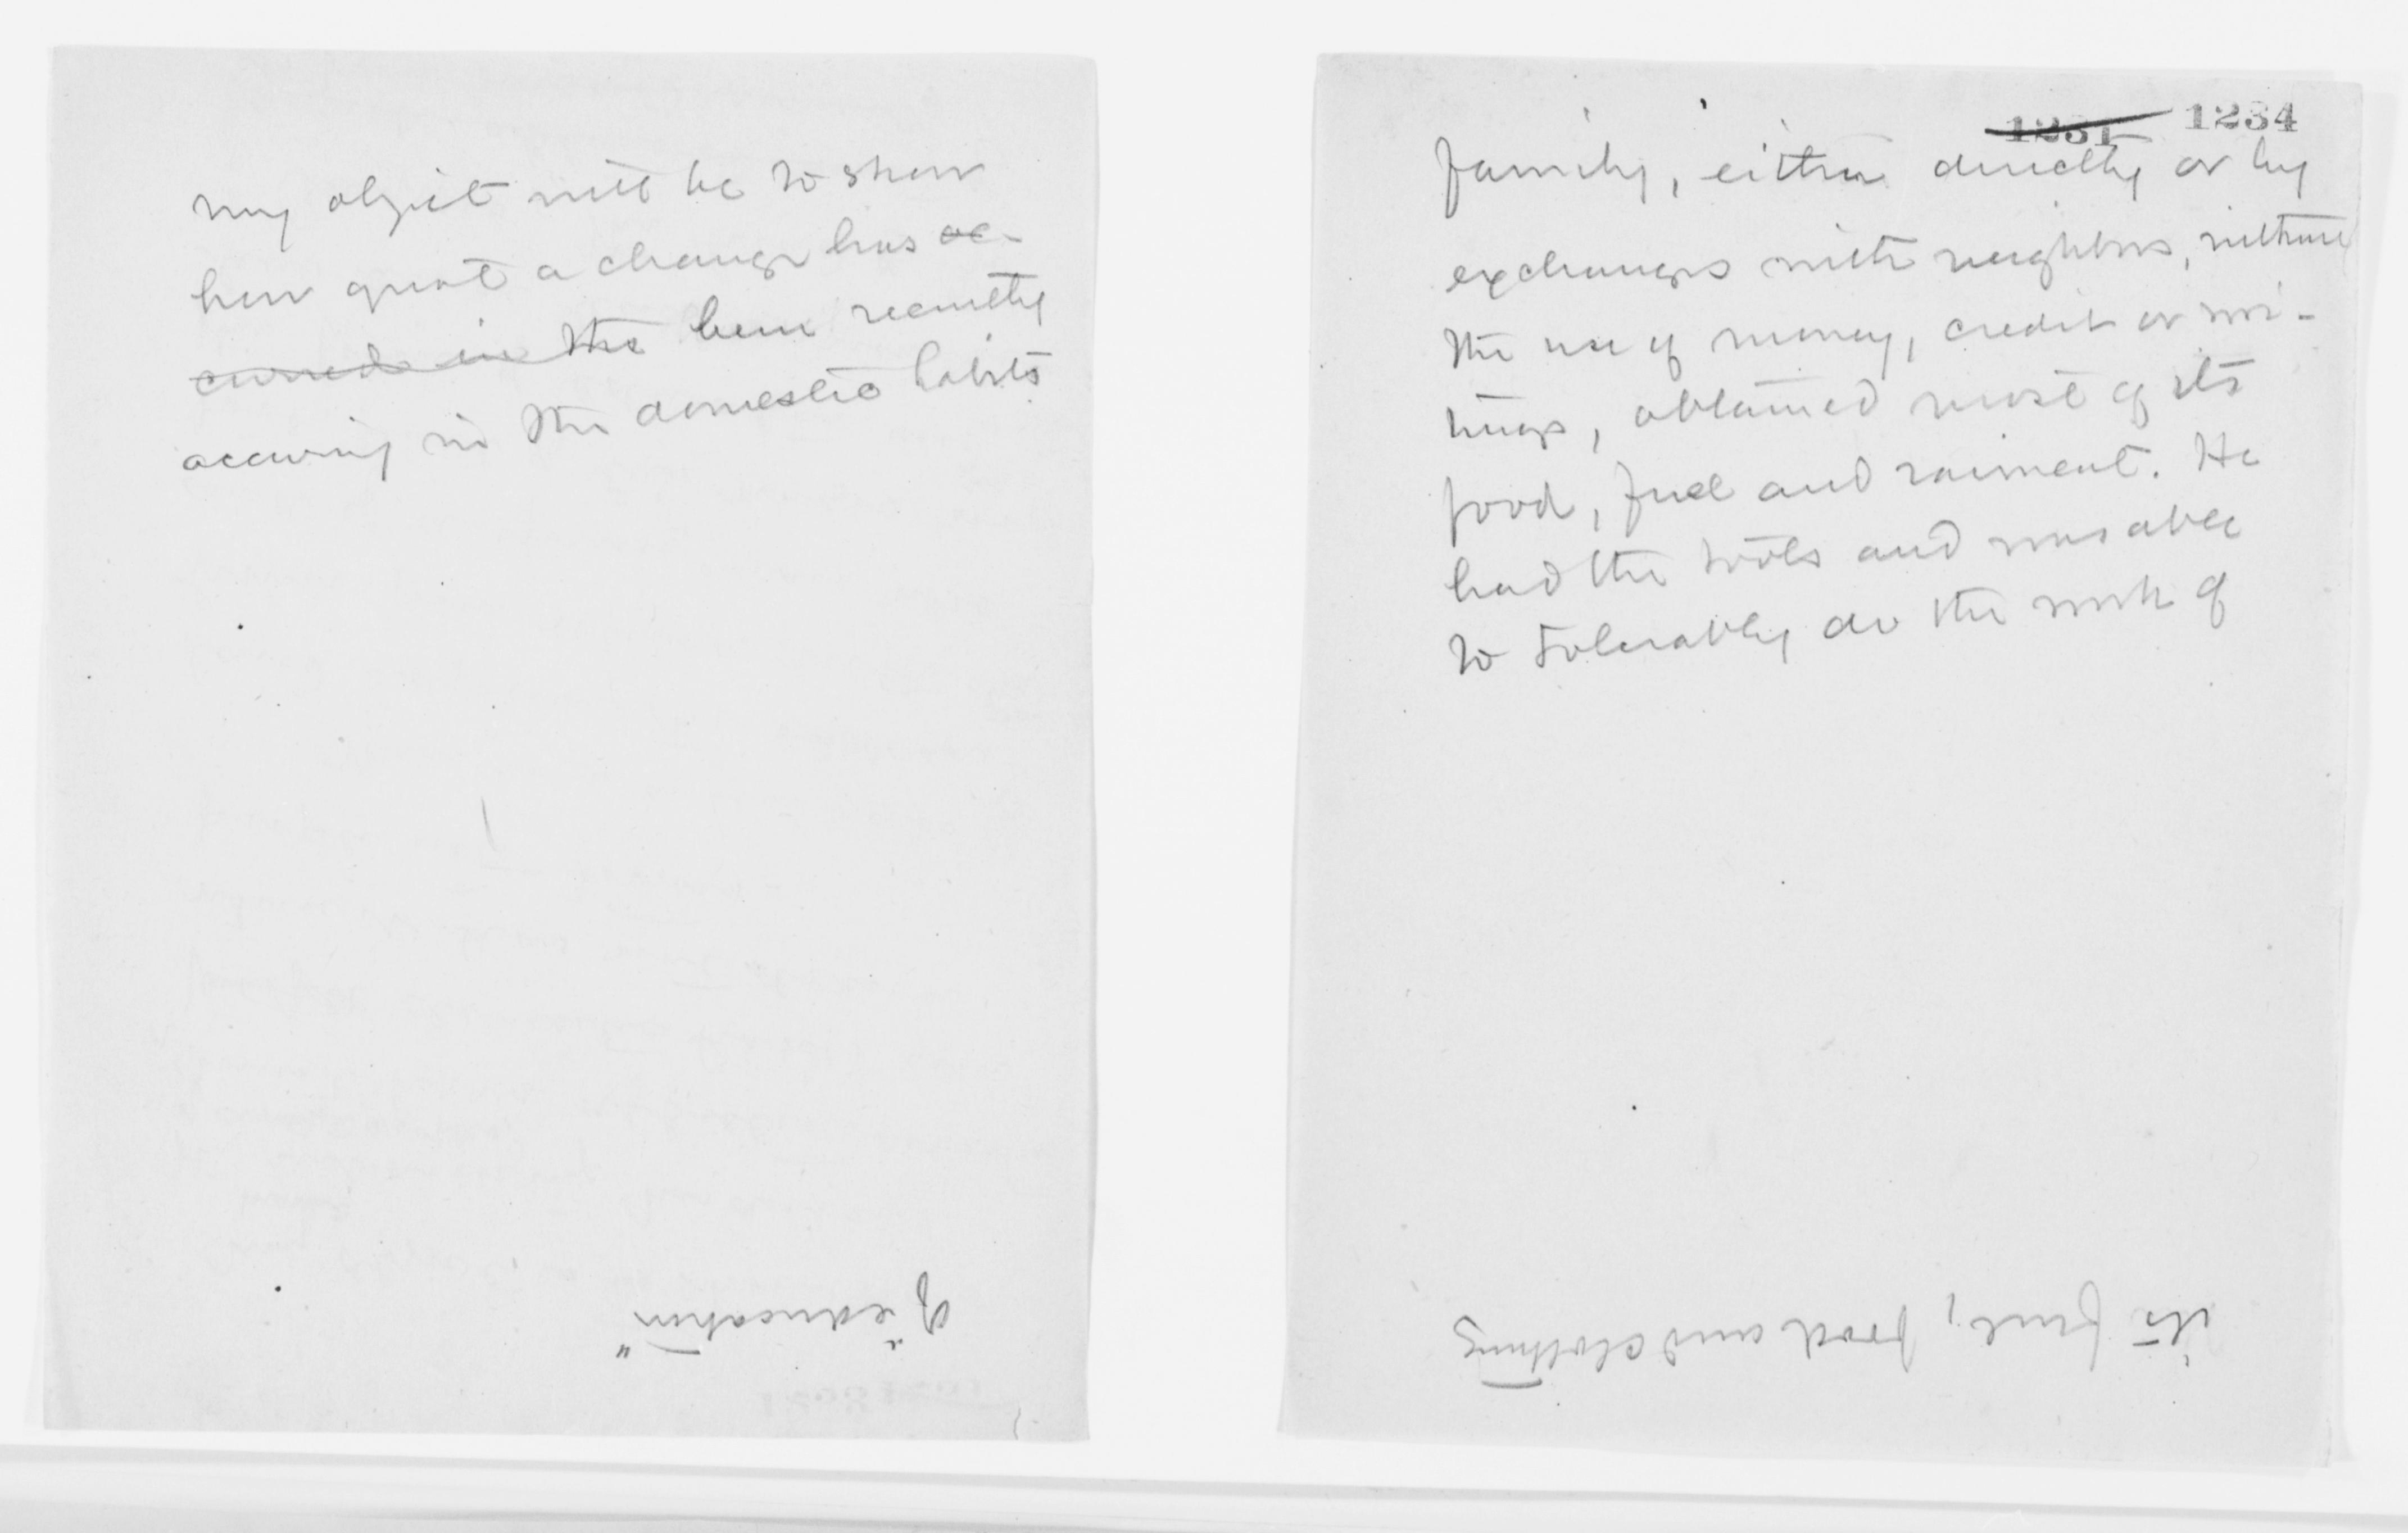 my object will be to show
how great a change has oc-
curred in the been recently
occuring in the domestic habits
of "education"
1231 1234
family, either directly or by
exchanges with neighbors, without
the use of money, credit or wri-
tings, obtained most of its
food, fuel and raiment. He
had the tools and was able
to tolerably do the work of
its fuel, food and clothing